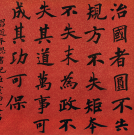 治國者圓不失
規方不失矩本
不失末為政不
失其道萬事可
成其功可保